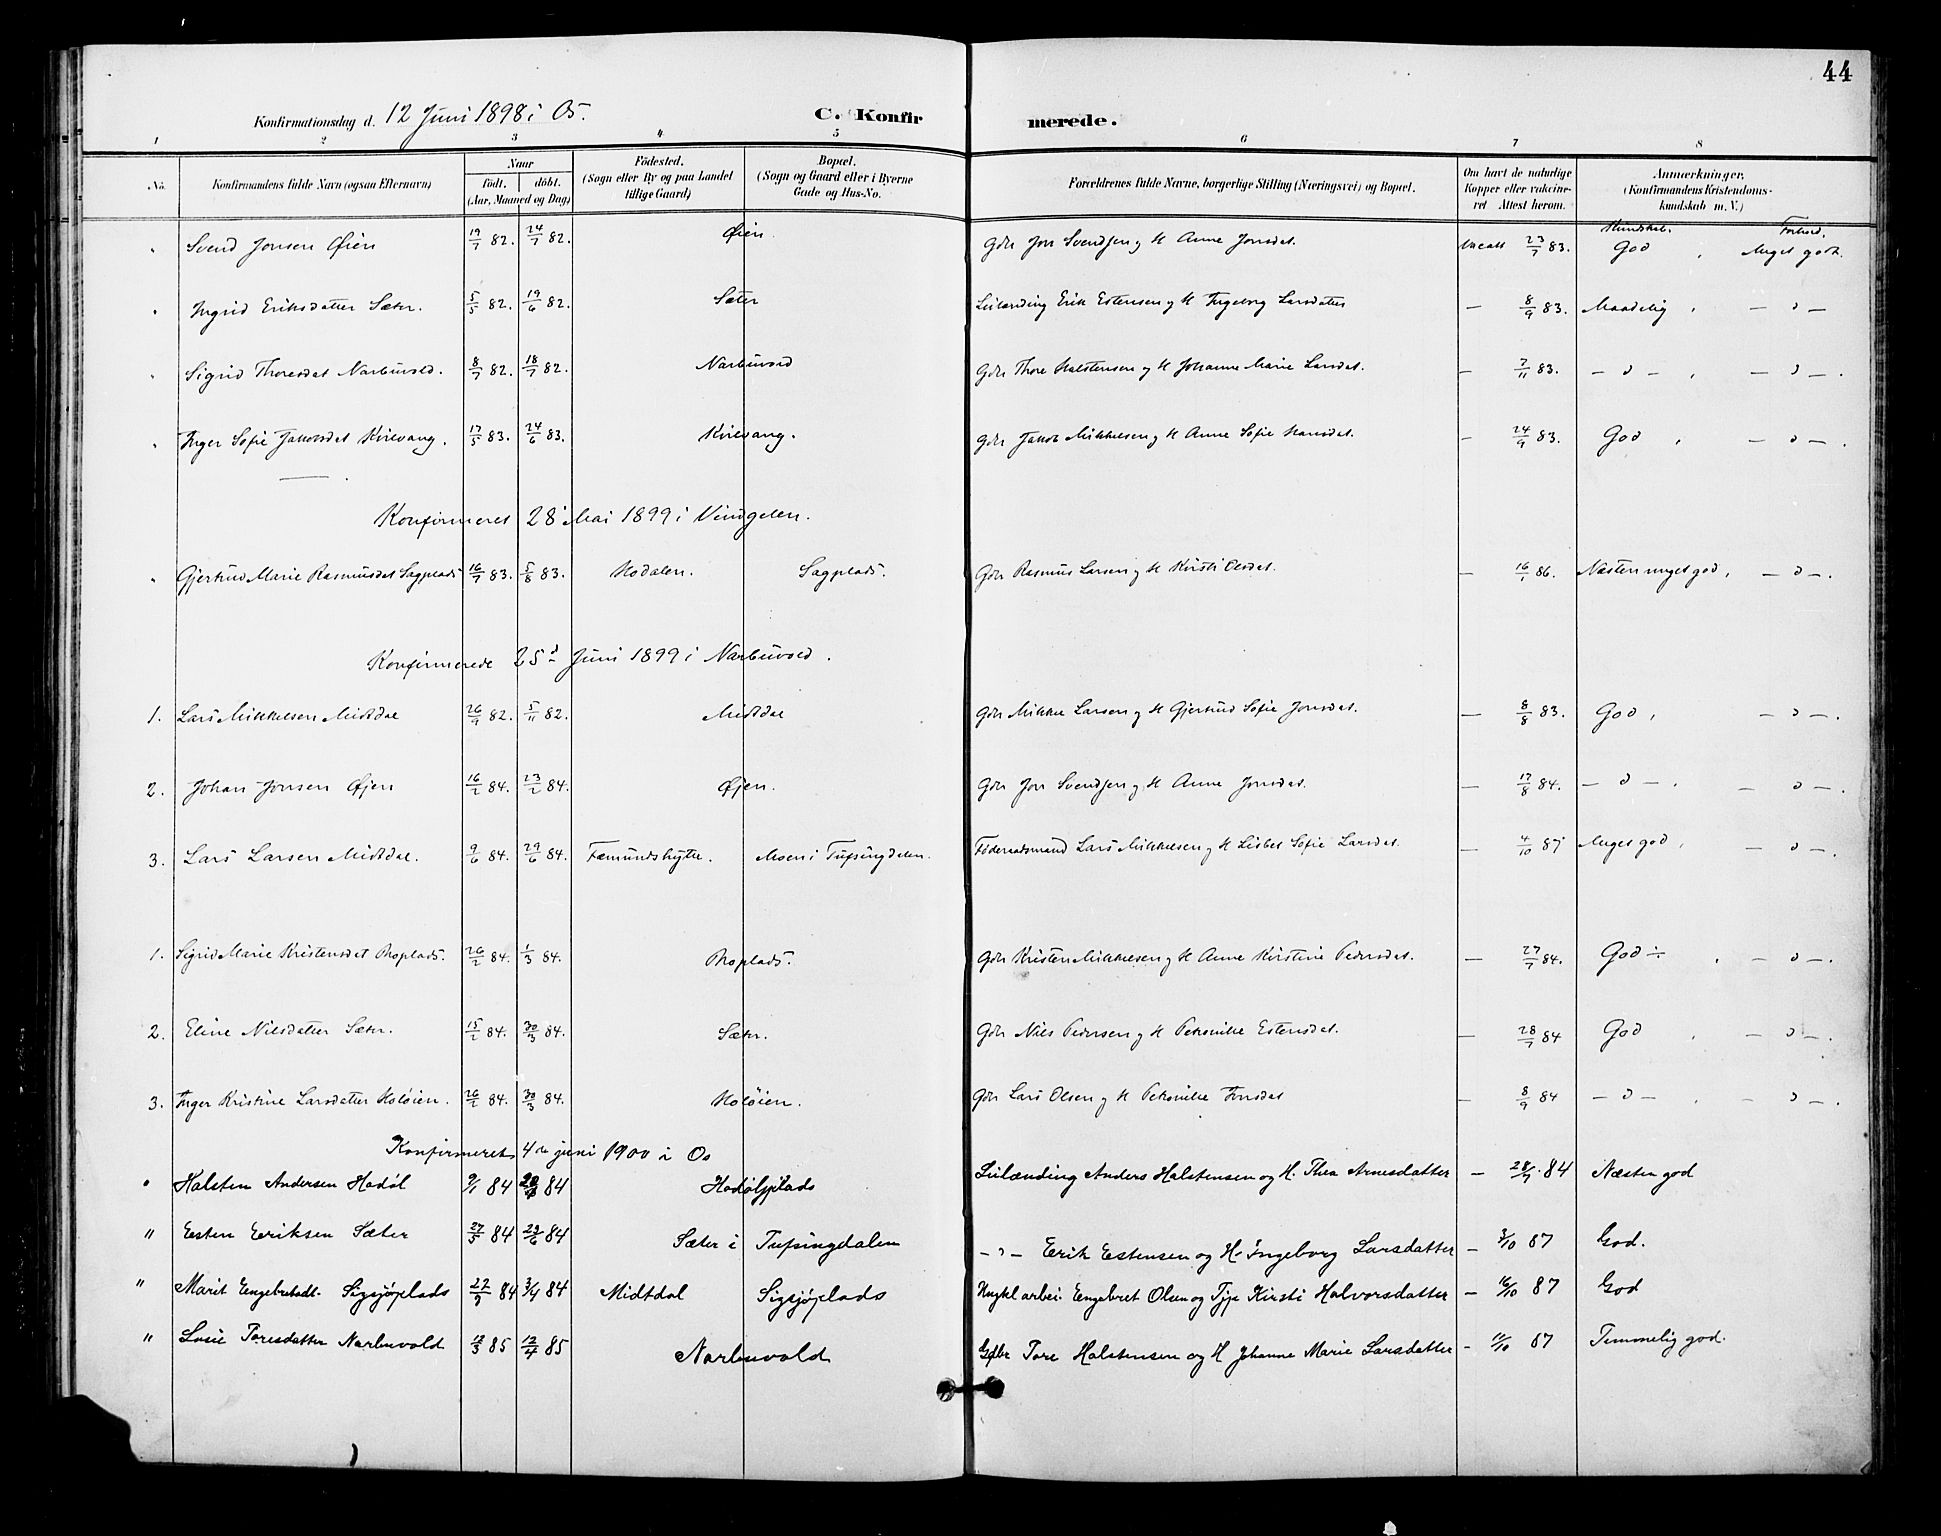 44
Konfirmationsdag d. 12 Juni 1898 i Os.
C. Konfirmerede.
1 2 3 4 5 6 7 8
No. Konfirmandens fulde Navn (ogsaa Efternavn) Naar födt. döbt. (Aar, Maaned og Dag) Födested. (Sogn eller By og paa Landet tillige Gaard) Bopæl. (Sogn og Gaard eller i Byerne Gade og Hus-No. Forældrenes fulde Navne, borgerlige Stilling (Næringsvei) og Bopæl. Om havt de naturlige Kopper eller vakcineret Attest herom. Anmærkninger, (Konfirmandens Kristendomskundskab m. V.)
Kundskab. Forhold.
" Svend Jonsen Øien 19/7 82. 24/7 82. Øien. Gdbr Jon Svendsen og H Anne Jonsdat. Vaccatt 23/7 83. God , Meget godt.
" Ingrid Eriksdatter Sæter. 5/5 82. 19/6 82. Sæter Leilænding Erik Estensen og H Ingeborg Larsdatter — 8/9 83. Maadelig , — " —
" Sigrid Thoresdat Narbuvold. 8/7 82. 18/7 82. Narbuvold Gdbr Thore Halstensen og H Johanne Marie Larsdat. — 7/11 83. — " — , — " — .
" Inger Sofie Jakobsdat Kirevang. 17/5 83. 24/6 83. Kirevang. Gdbr Jakob Mikkelsen og H Anne Sofie Hansdat. — 24/9 83. God , — " — .
Konfirmeret 28 Mai 1899 i Vingelen.
" Gjertrud Marie Rasmusdat Sagplads 16/7 83. 5/8 83. Hodalen. Sagplads. Gdbr Rasmus Larsen og H Kirsti Olsdat. — 16/1 86. Næsten meget god, — " — .
Konfirmerede 25d Juni 1899 i Narbuvold.
1. Lars Mikkelsen Midtdal 26/9 82. 5/11 82. Midtdal Gdbr Mikkel Larsen og H Gjertrud Sofie Jonsdat. — 8/8 83. God, — " — .
2. Johan Jonsen Øjen 16/2 84. 23/2 84. Øjen. Gdbr Jon Svendsen og H Anne Jonsdat. — 17/8 84. — " — . — " — .
3. Lars Larsen Midtdal. 9/6 84. 29/6 84. Fæmundshytte. Moen i Tufsingdalen. Föderaadsmand Lars Mikkelsen og H Lisbet Sofie Larsdat. — 4/10 87 Meget god, — " — .
1. Sigrid Marie Kristensdat Moplads. 26/2 84. 1/3 84. Moplads. Gdbr Kristen Mikkelsen og H Anne Kirstine Pedersdat. — 27/7 84. God ÷ . — " — .
2. Eline Nilsdatter Sæter. 15/2 84. 30/3 84. Sæter. Gdbr Nils Pedersen og H Petronille Estensdat. — 28/7 84 God , — " — .
3. Inger Kristine Larsdatter Holöien. 26/2 84. 30/3 84. Holöien. Gdbr Lars Olsen og H Petronille Jonsdat — 8/9 84 — " — . — " — .
Konfirmeret 4de juni 1900 i Os
" Halsten Andersen Hodöl 9/1 84 84 Hodölplads Leilænding Anders Halstensen og H. Thea Arnesdatter — 84 Næsten god
" Esten Eriksen Sæter 27/5 84 29/6 84 Sæter i Tufsingdalen — " — Erik Estensen og H. Ingeborg Larsdatter — 3/10 87 God.
" Marit Engebretsdt. Sigsjöplads 84 3/4 84 Midtdal Sigsjöplads Engebret Olsen og Kirsti Halvorsdatter — 16/10 87 God
" Losie Toresdatter Narbuvold 12/3 85 12/4 85 Narbuvold Gdbr Tore Halstensen og H Johanne Marie Larsdatter — 87 Temmelig god.